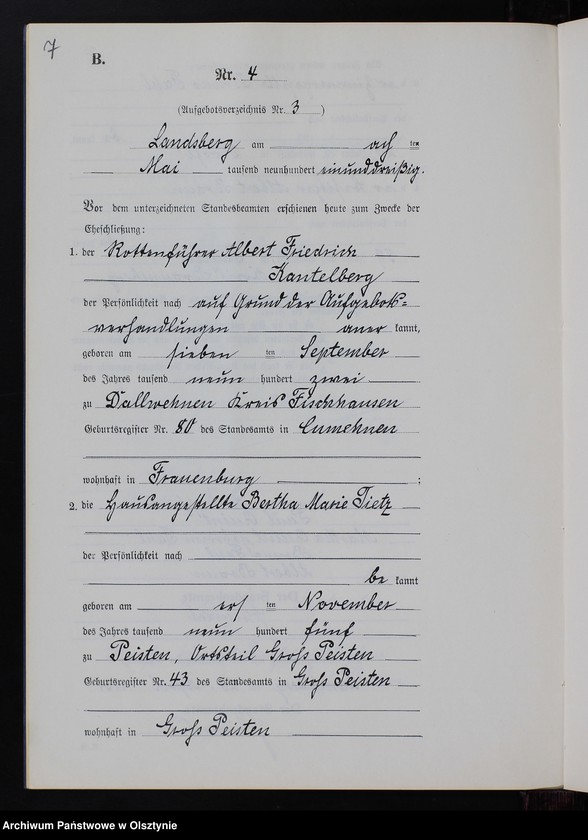 7
B.
Nr. 4
(Aufgebotsverzeichnis Nr. 3)
Landsberg am ach ten
Mai tausend neunhundert einunddreißig.
Vor dem unterzeichneten Standesbeamten erschienen heute zum Zwecke der
Eheschließung:
1. der Rottenführer Albert Friedrich
Kantelberg
der Persönlichkeit nach auf Grund der Aufgebots=
verhandlungen aner kannt,
geboren am sieben ten September
des Jahres tausend neun hundert zwei
zu Dallwehnen Kreis Fischhausen
Geburtsregister Nr. 80 des Standesamts in Cumehnen
wohnhaft in Frauenburg ;
2. die Hausangestellte Bertha Marie Tietz
der Persönlichkeit nach
be kannt
geboren am ers ten November
des Jahres tausend neun hundert fünf
zu Peisten, Ortsteil Gross Peisten
Geburtsregister Nr. 43 des Standesamts in Gross Peisten
wohnhaft in Gross Peisten
Archiwum Państwowe w Olsztynie